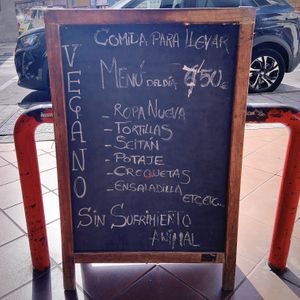 COMIDA PARA LLEVAR
VEGANO
MENÚ DEL DÍA 7'50€
- ROPA NUEVA
- TORTILLAS
- SEITÁN
- POTAJE
- CROQUETAS
- ENSALADILLA
ETCETC...
SIN SUFRIMIENTO
ANIMAL